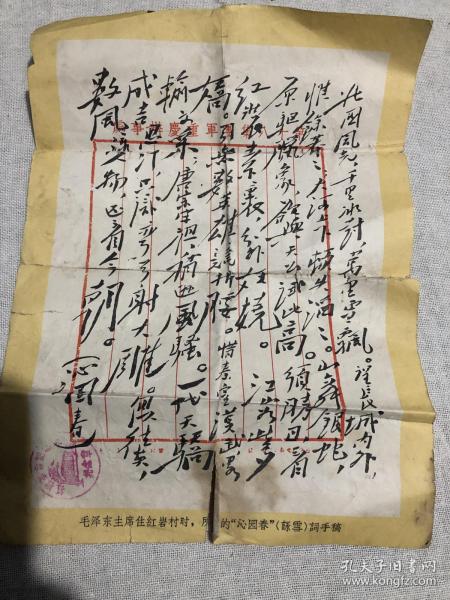 軍重慶
北国风光,千里冰封,萬里雪飘。望長城内外,
惟餘莽莽;大河上下,頓失滔滔。山舞银蛇,
原驰腊象,欲與天公試比高。須晴日,看
红装素裹,分外妖娆。江山如此多
嬌,引無數英雄競折腰。惜秦皇漢武,畧
輸文采;唐宗宋祖,稍逊風騷。一代天驕,
成吉思汗,只识弯弓射大雕。俱往矣,
數風流人物,还看今朝。沁園春
毛泽东主席住红岩村时,所 的“沁園春”(詠雪)詞手稿
孔夫子旧书网